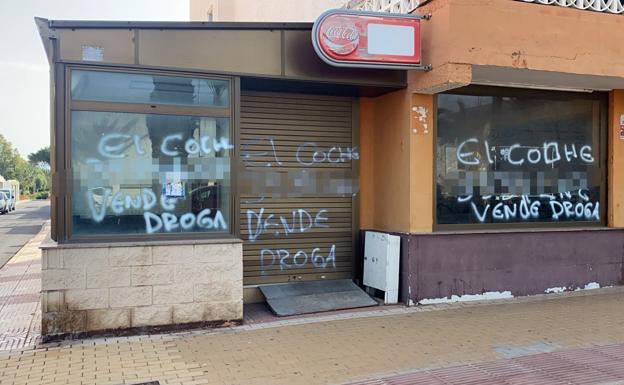 Coca-Cola
EL COCHE
VENDE
DROGA
EL COCHE
VENDE
DROGA
EL COCHE
VENDE DROGA